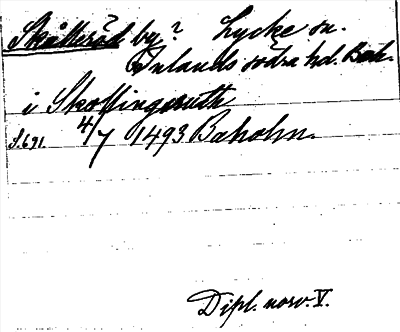 Skålleröd by? Lycke sn.
Inlands södra hd. Boh.
i Skollingsrudh
S.691. 4/7 1493 Baholm.
Dipl. norv. V.